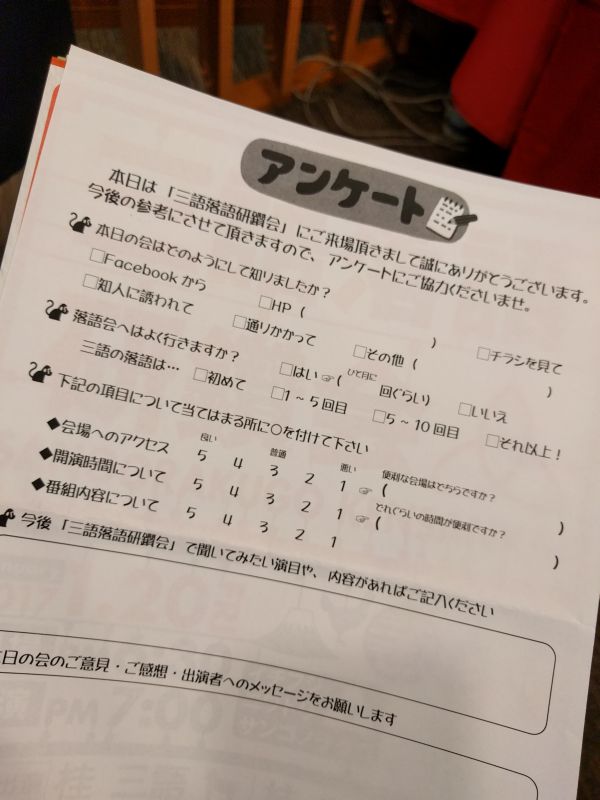 アンケート
本日は「三語落語研鑽会」にご来場頂きまして誠にありがとうございます。
今後の参考にさせて頂きますので、アンケートにご協力くださいませ。
本日の会はどのようにして知りましたか?
□Facebookから □HP ( ) □チラシを見て
□知人に誘われて □通りかかって □その他 ( )
落語会へはよく行きますか? □はい☞( ひと月に 回ぐらい) □いいえ
三語の落語は… □初めて □1~5回目 □5~10回目 □それ以上!
下記の項目について当てはまる所に○を付けて下さい
良い 普通 悪い
◆会場へのアクセス 5 4 3 2 1 ☞ 便利な会場はどちらですか? ( )
◆開演時間について 5 4 3 2 1 ☞ どれぐらいの時間が便利ですか? ( )
◆番組内容について 5 4 3 2 1
今後「三語落語研鑽会」で聞いてみたい演目や、内容があればご記入ください
日の会のご意見・ご感想・出演者へのメッセージをお願いします
PM 7:00
桂 三語